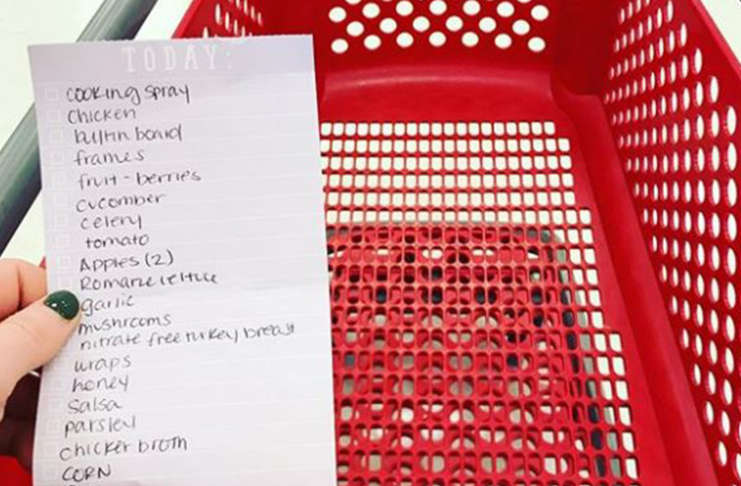 TODAY:
cooking spray
chicken
bulltin board
frames
fruit - berries
cucomber
celery
tomato
Apples (2)
Romaine lettuce
garlic
mushrooms
nitrate free turkey breast
wraps
honey
salsa
parsley
chicken broth
CORN